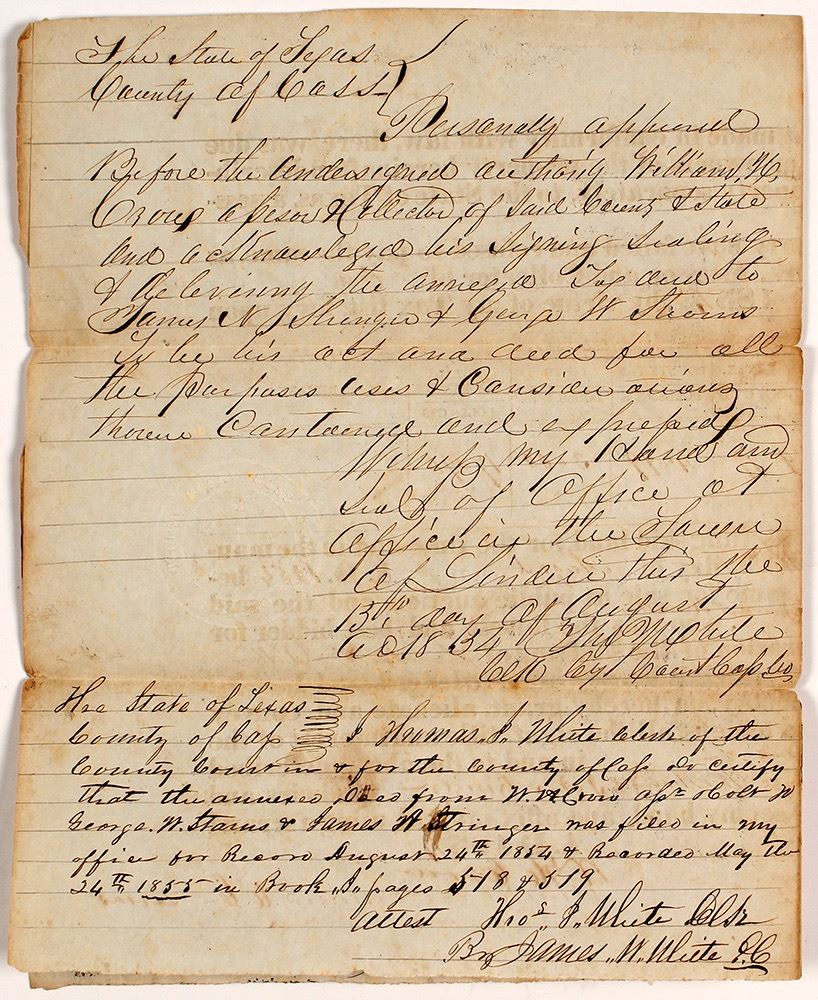 The State of Texas
County of Cass
Personally appeared
Before the undersigned authority William H.
Crow assessor & Collector of said County & State
and acknowleged his signing sealing
& delevering the annexed Tax deed to
James N Stringer & George W Starns
To be his act and deed for all
the purposes uses & Considerations
therein Contained and expressed
Witness my Hand and
Seal of Office at
Office in the Town
of Linden this the
15th day of August
AD 1854 Thos J White
Clk Cty Court Cass Co
The State of Texas
County of Cass I Thomas J. White Clerk of the
County Court in & for the County of Cass do certify
that the annexed Deed from W. H Crow assr & Colt to
George. W. Starns & James N Stringer was filed in my
office for Record August 24th 1854 & Recorded May the
24th 1855 in Book "J" pages 518 & 519
Attest Thos J. White Clk
By James. W. White D.C